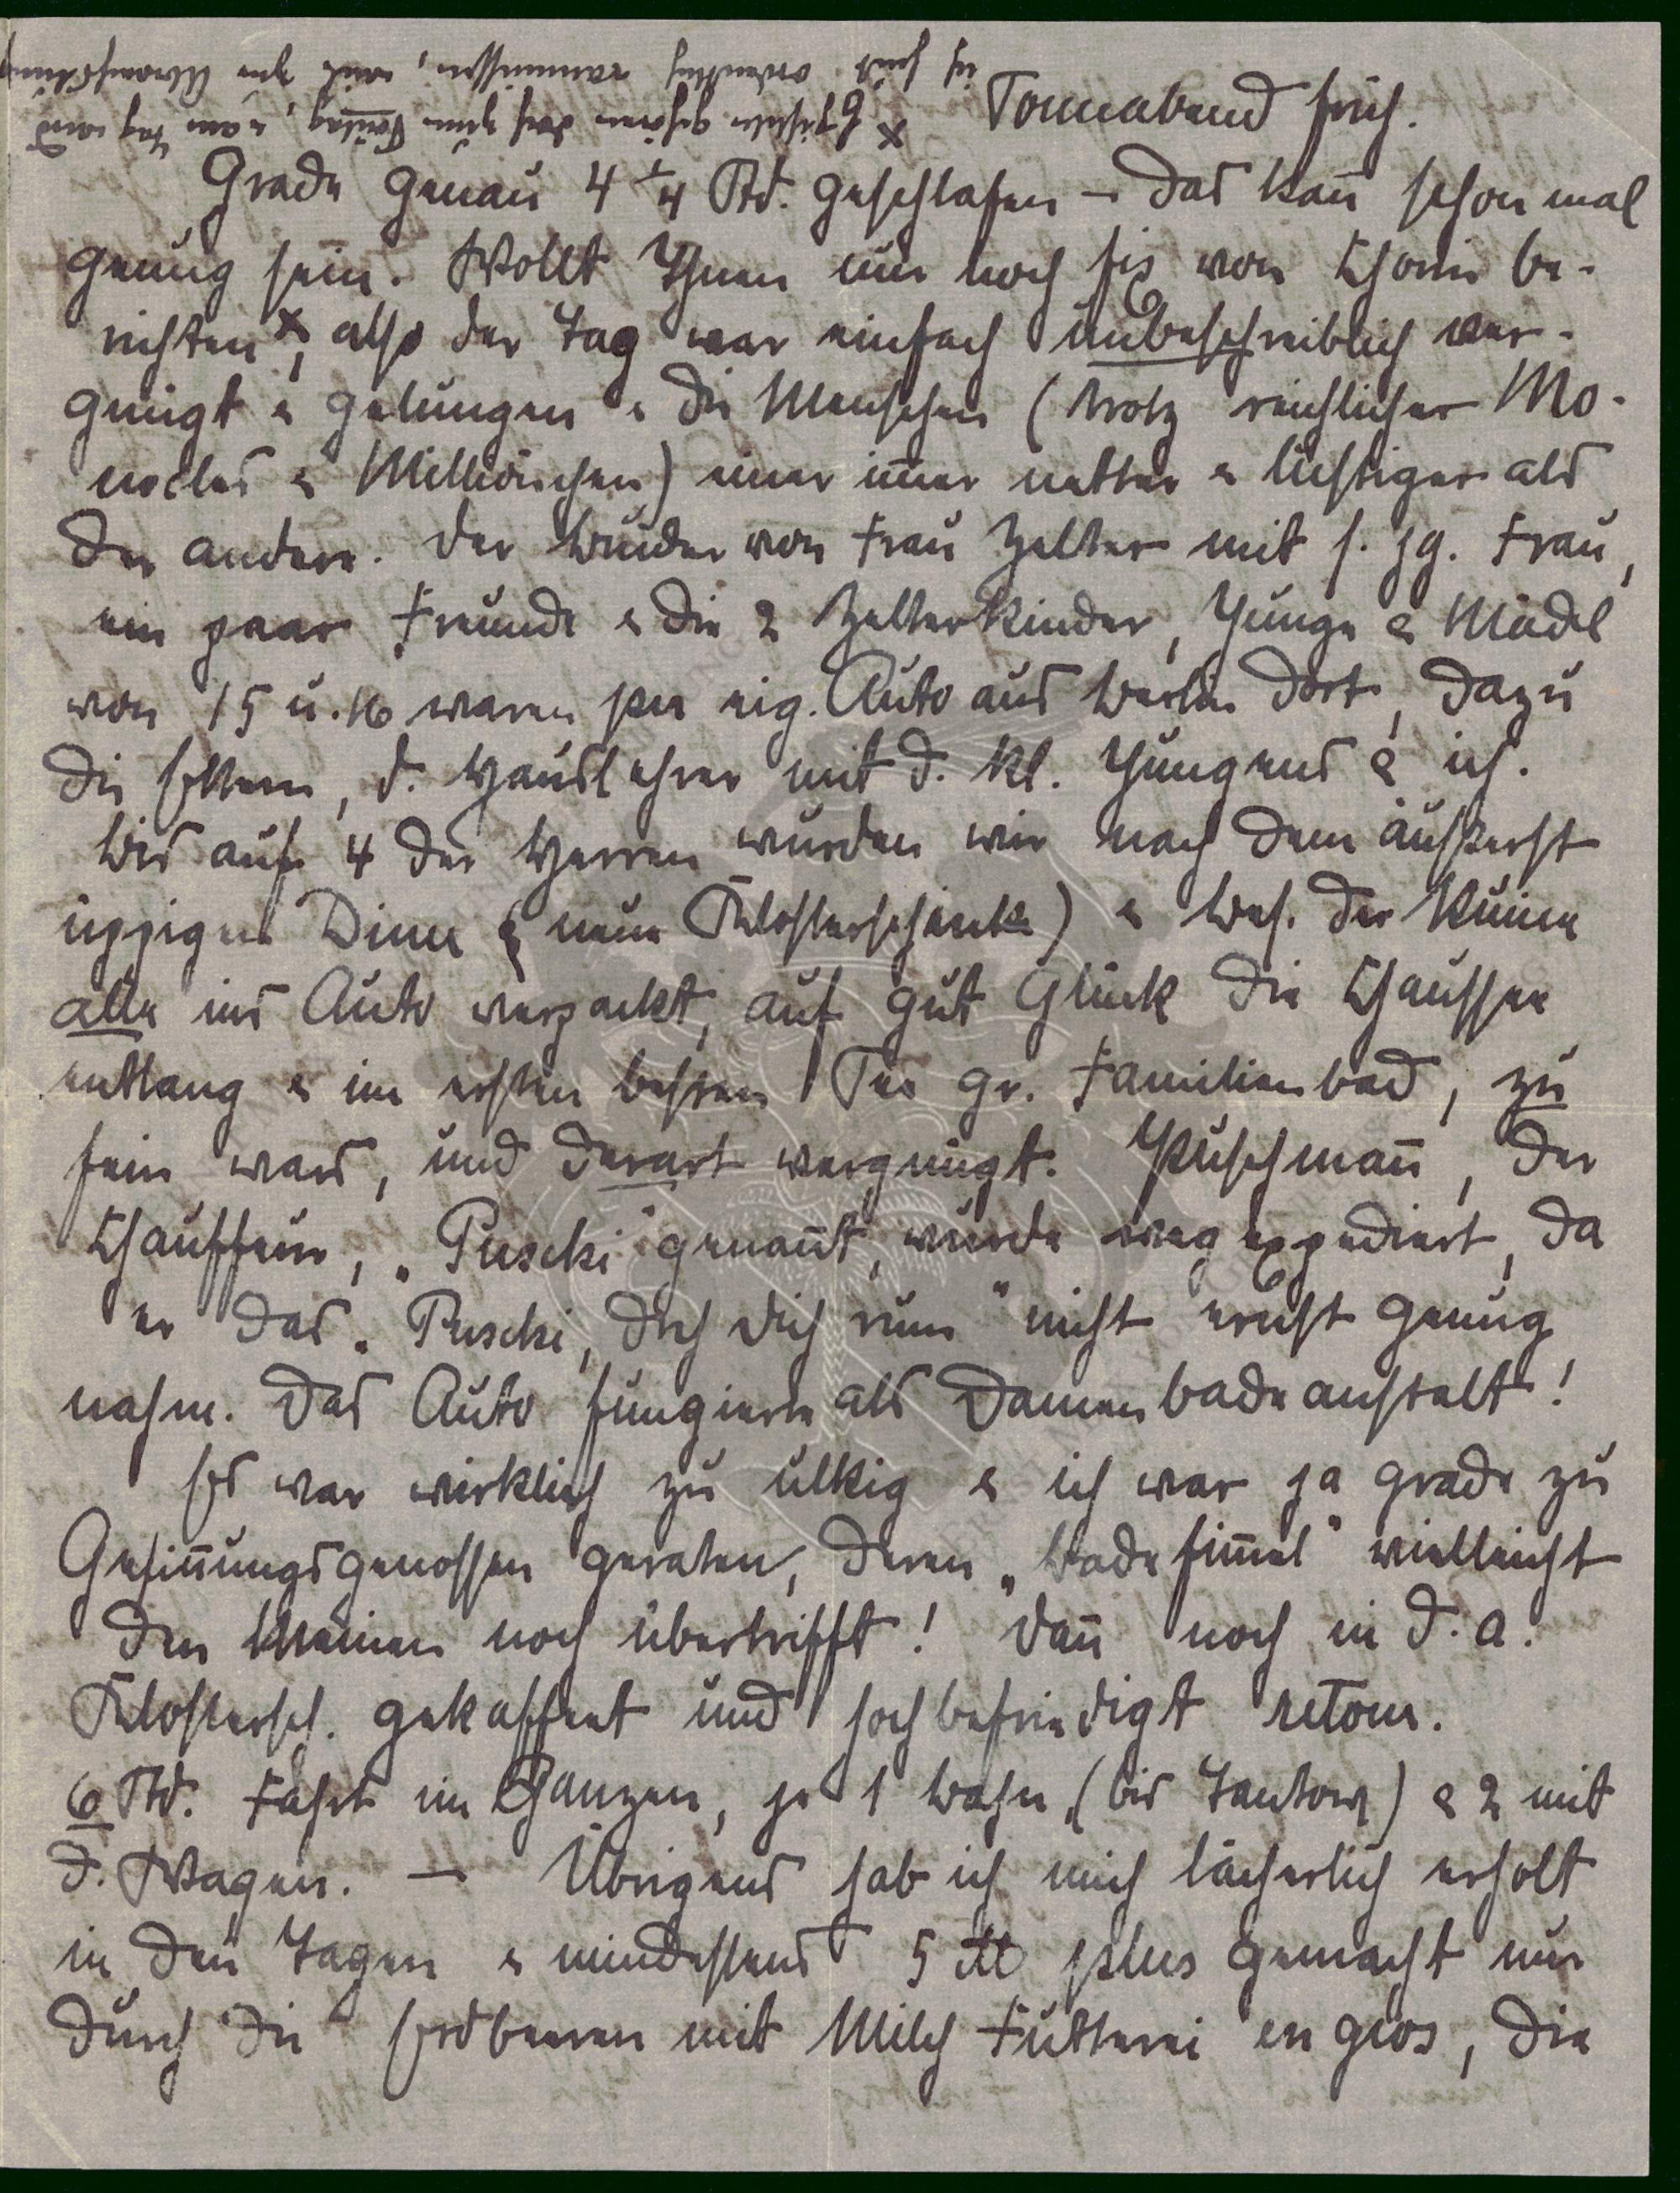 Sonnabend früh.
Grade genau 4 1/4 Std. geschlafen – das kann̄ schon mal
genug sein. Wollt Ihnen nur noch fix von Chorin be-
richten ×, also der Tag war einfach unbeschreiblich ver-
gnügt & gelungen & die Menschen (trotz reichlicher Mo-
nocles & Milliönchen) einer im̄er netter & lustiger als
der andere. Der Bruder von Frau Zelter mit s. jg. Frau,
ein paar Freunde & die 2 Zelterkinder, Junge & Mädel
von 15 u. 16 waren per eig. Auto aus Berlin dort, dazu
die Eltern, d. Hauslehrer mit d. kl. Jungens & ich.
Bis auf 4 der Herren wurden wir nach dem äußerst
üppigen Diner (neue Klosterschenke) & Bes. der Ruine
alle ins Auto verpackt, auf gut Glück die Chaussee
entlang & im ersten besten See gr. Familienbad, zu
fein wars, und derart vergnügt. Puschman̄, der
Chauffeur, „Puschi" genan̄t, wurde wegexpediert, da
er das „Puschi, dreh dich rum" nicht ernst genug
nahm. Das Auto fungierte als Damenbadeanstalt!
Es war wirklich zu ulkig & ich war ja grade zu
Gesin̄ungsgenossen geraten, deren „Badefim̄el" vielleicht
den Meinen noch übertrifft! Dan̄ noch in d. a.
Klostersch. gekaffeet und hochbefriedigt retour.
6 Std. Fahrt im Ganzen, je 1 Bahn (bis Tantow) & 2 mit
d. Wagen. – Übrigens hab ich mich lächerlich erholt
in den Tagen & mindestens 5 ℔ plus gemacht nur
durch die Erdbeeren mit Milch Futterei en gros, die
× gehören doch zum Tag, & am Tag wird
ich heut ordentlich vermissen, mit zur